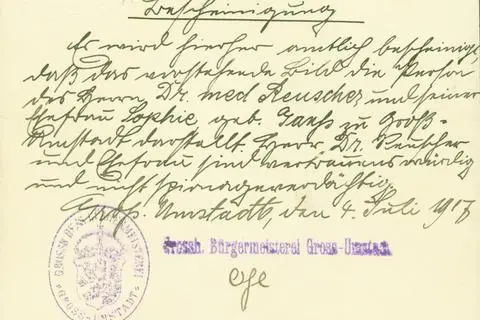 Bescheinigung
Es wird hierher amtlich bescheinigt,
daß das vorstehende Bild die Person
des Herrn Dr. med Reuscher und seiner
Ehefrau Sophie geb. zu Groß-
Umstadt darstellt. Herr Dr. Reuscher
und Ehefrau sind vertrauenswürdig
und nicht spionageverdächtig.
Groß-Umstadt, den 4. Juli 1917
Grossh. Bürgermeisterei Gross-Umstadt
GROSSH HESS BÜRGERMEISTEREI
GROSS-UMSTADT